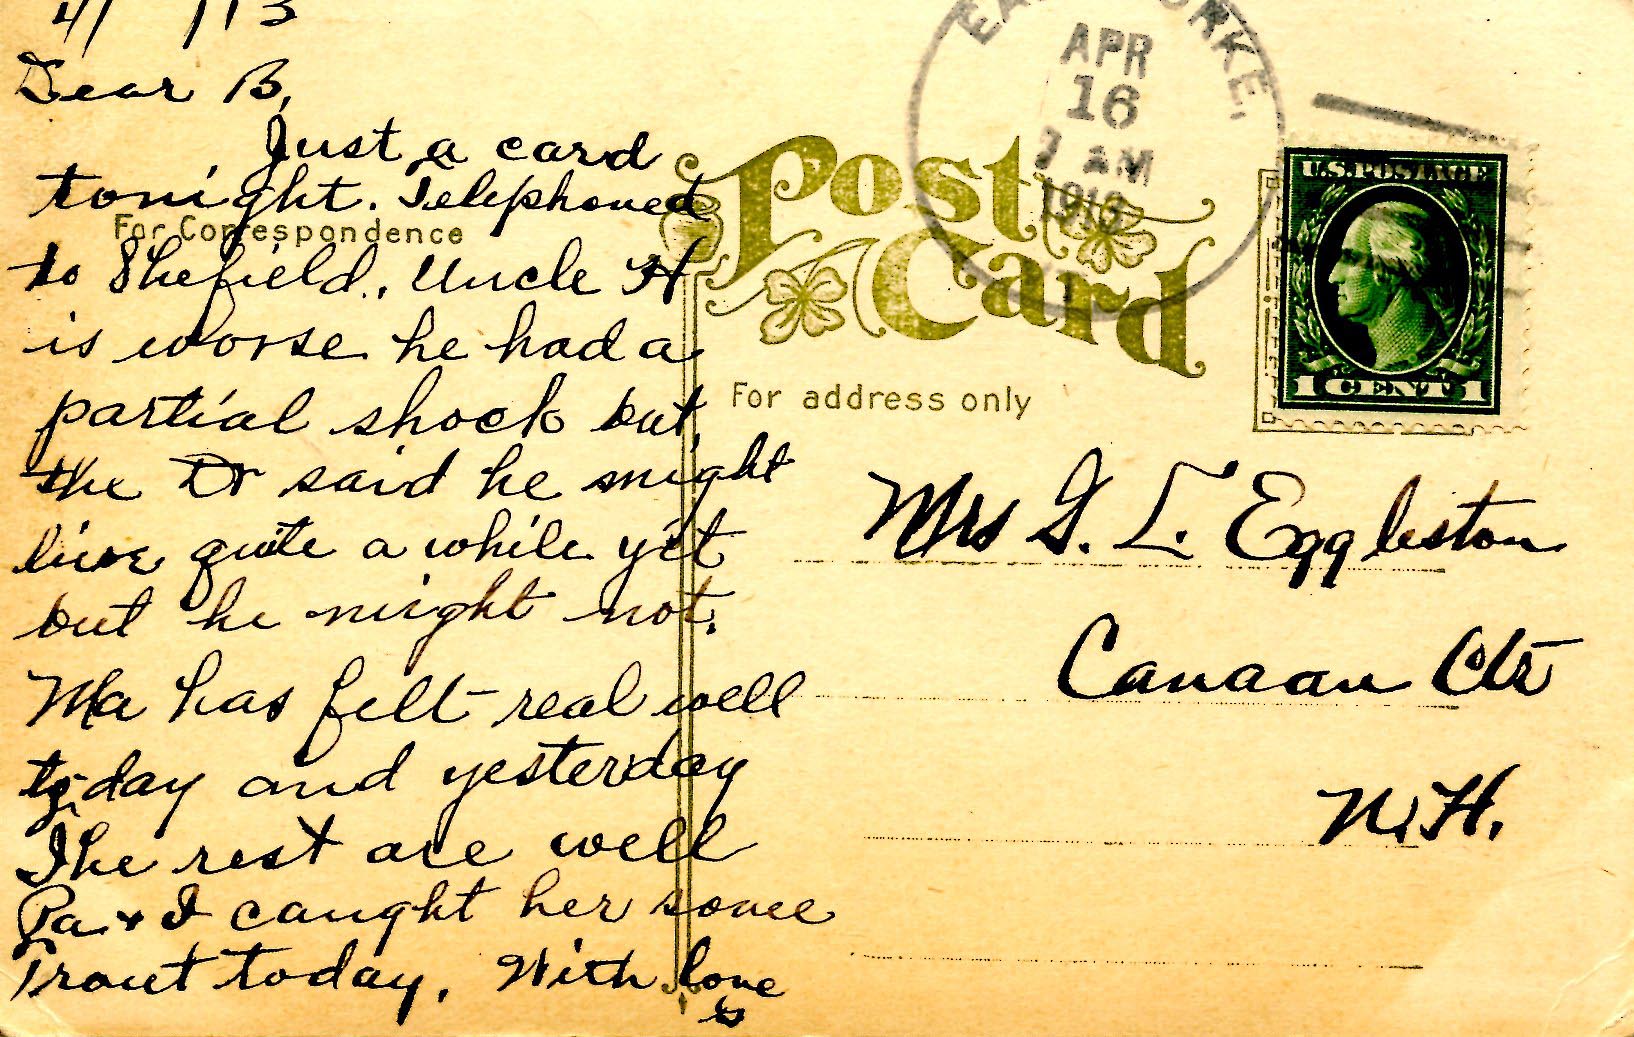 4/ /13
Dear B,
Just a card
tonight. Telephoned
For Correspondence
to Shefield. Uncle H
is worse he had a
partial shock but
the Dr said he might
live quite a while yet
but he might not.
Ma has felt real well
today and yesterday
The rest are well
Pa + I caught her some
Trout today. With love
APR
16
7 AM
1913
Post
Card
U.S. POSTAGE
1 CENT 1
For address only
Mrs G. L. Eggleston
Canaan Ctr
N.H.